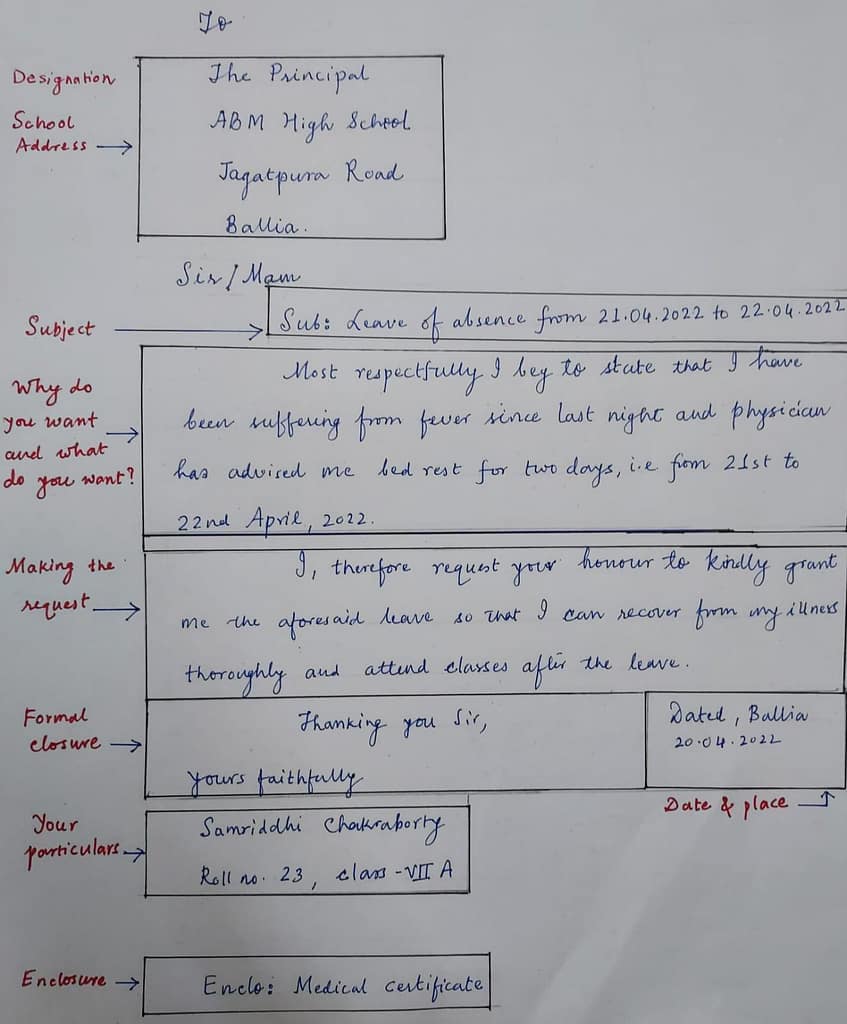 To
Designation
The Principal
School
Address
ABM High School
Jagatpura Road
Ballia.
Sir/Mam
Subject
Sub: Leave of absence from 21.04.2022 to 22.04.2022
Why do
you want
and what
do you want?
Most respectfully I beg to state that I have
been suffering from fever since last night and physician
has advised me bed rest for two days, i.e from 21st to
22nd April, 2022.
Making the
request
I, therefore request your honour to kindly grant
me the aforesaid leave so that I can recover from my illness
thoroughly and attend classes after the leave.
Formal
closure
Thanking you Sir,
yours faithfully
Dated, Ballia
20.04.2022
Date & place
Your
particulars
Samriddhi Chakraborty
Roll no. 23, class-VII A
Enclosure
Enclo: Medical certificate